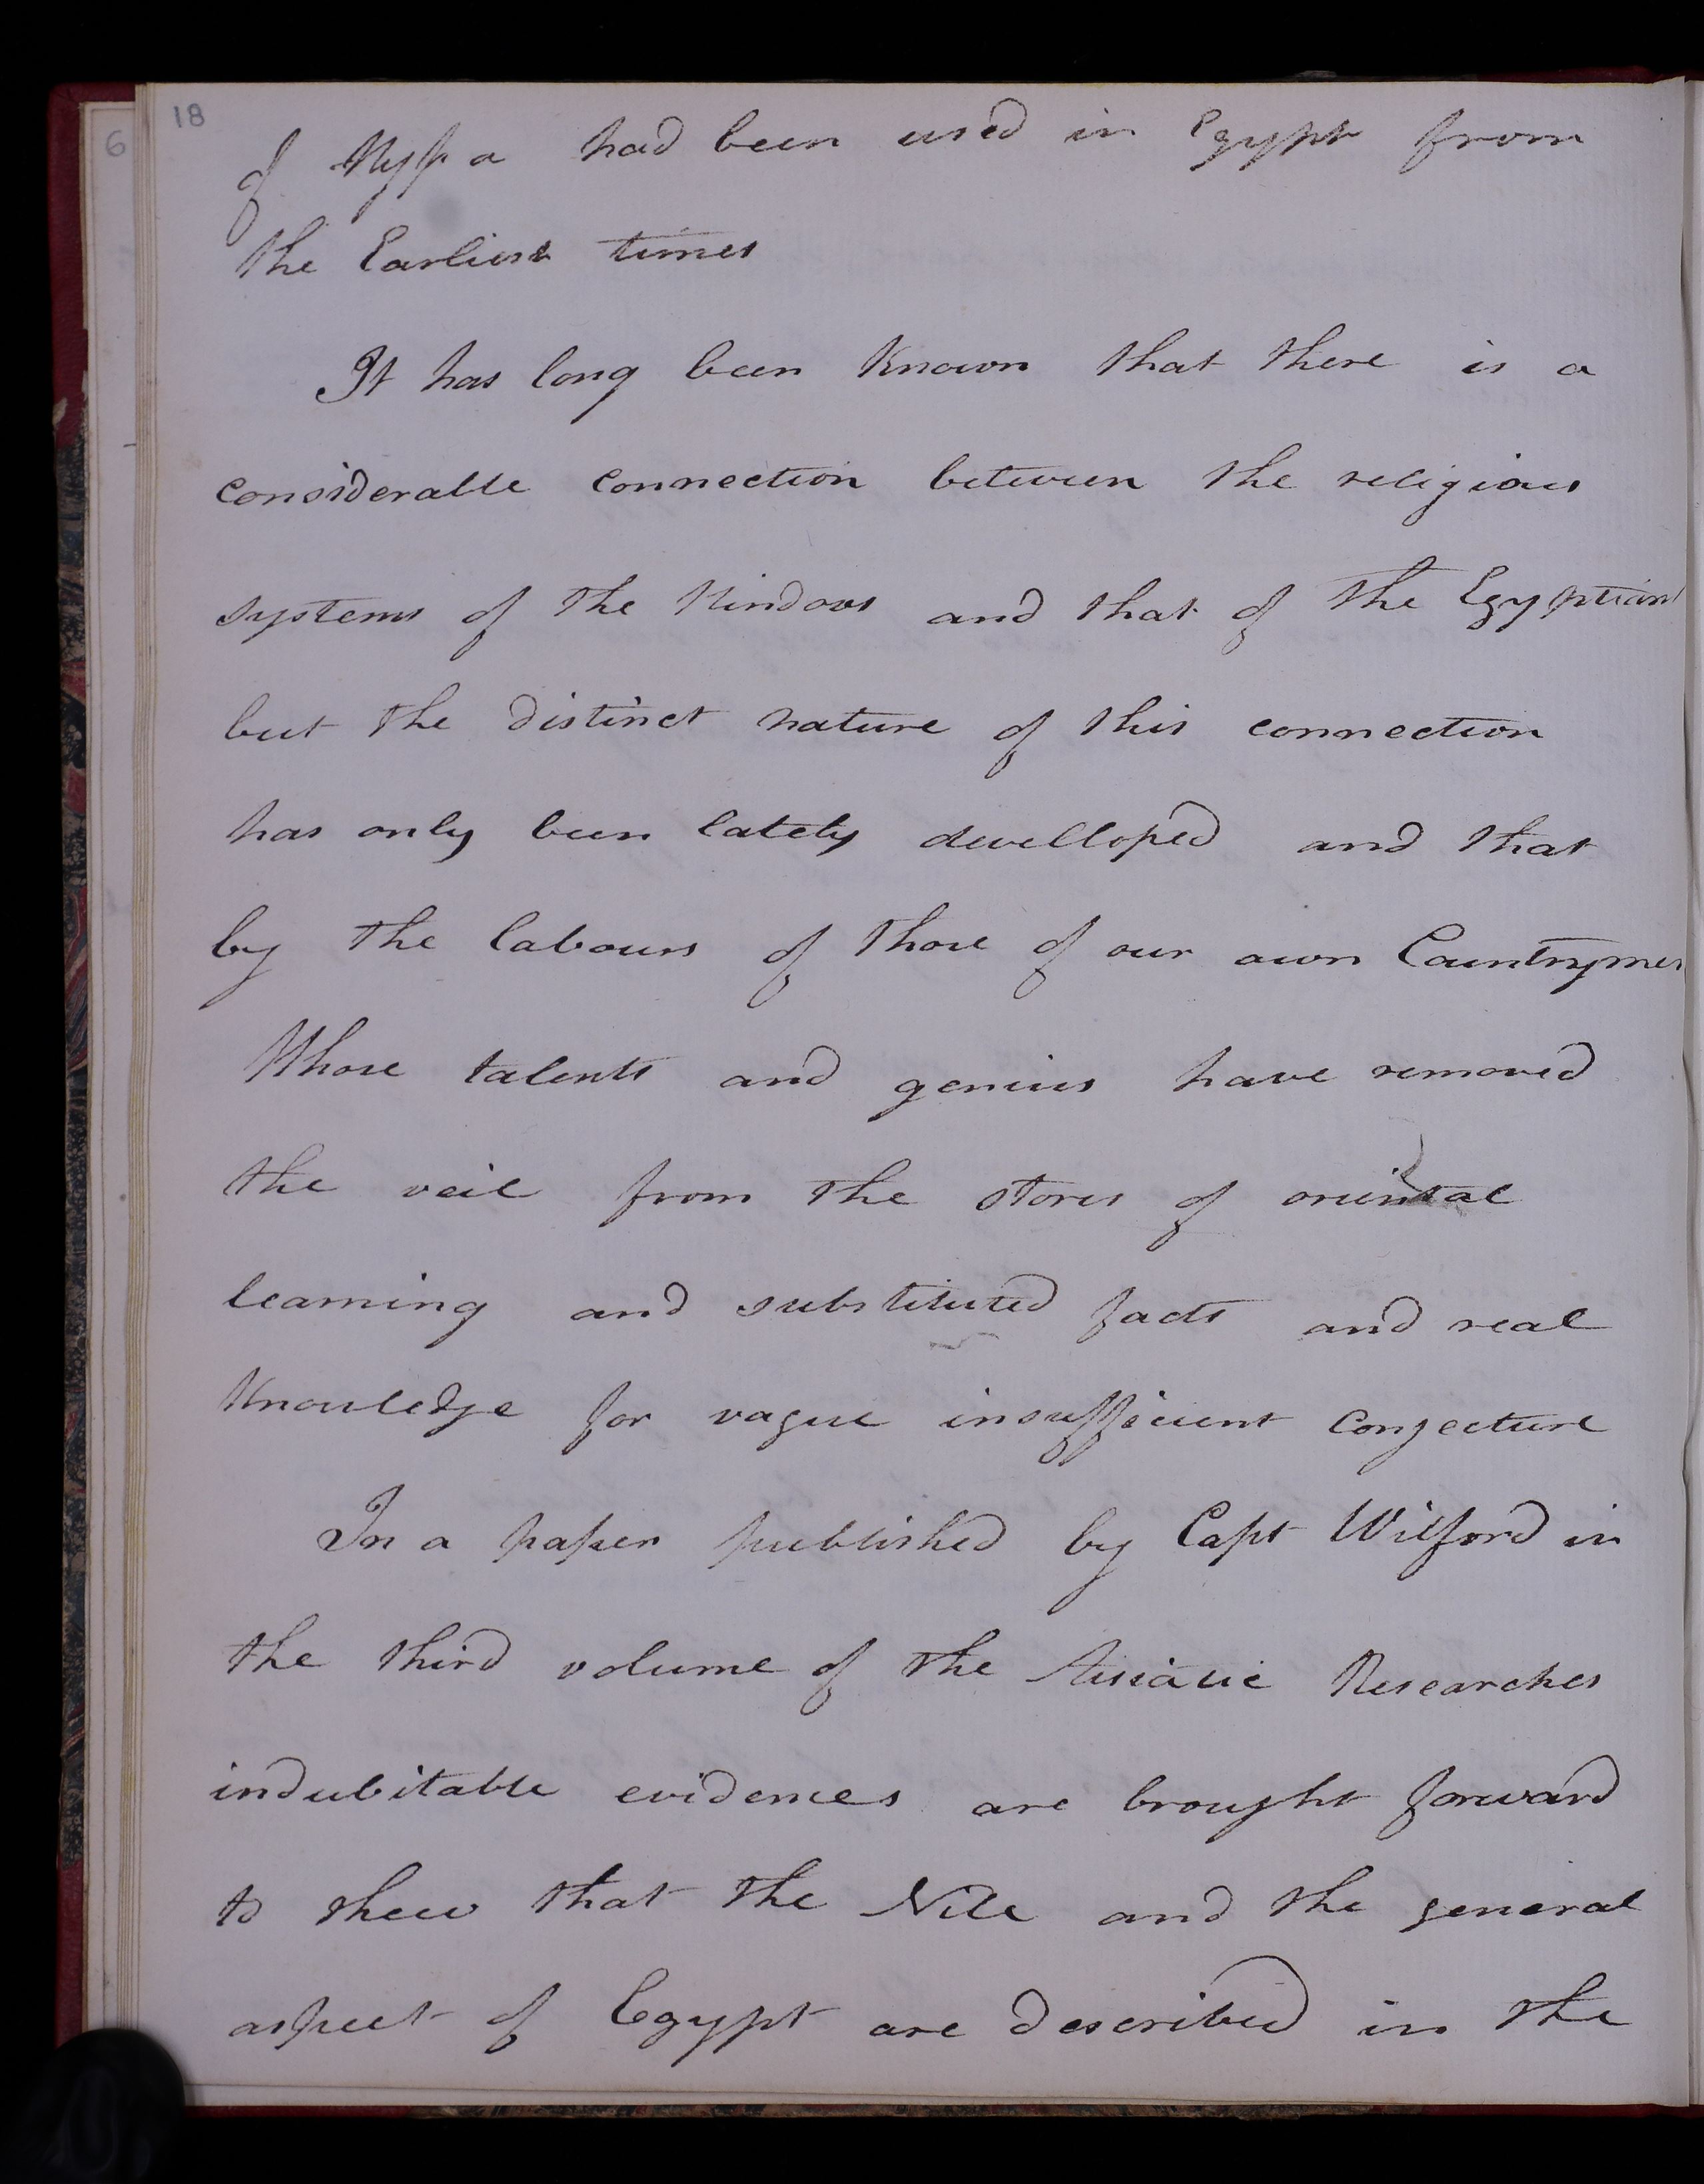 18
6
of Nyssa had been used in Egypt from
the Earliest times
It has long been Known that there is a
considerable connection between the religious
systems of the Hindoos and that of the Egyptians
but the distinct nature of this connection
has only been lately develloped and that
by the labours of those of our own Countrymen
Whose talents and genius have removed
the veil from the stores of oriental
learning and substituted facts and real
Knowledge for vague insufficient conjecture
In a paper published by Capt Wilford in
the third volume of the Asiatic Researches
indubitable evidences are brought forward
to shew that the Nile and the general
aspect of Egypt are described in the